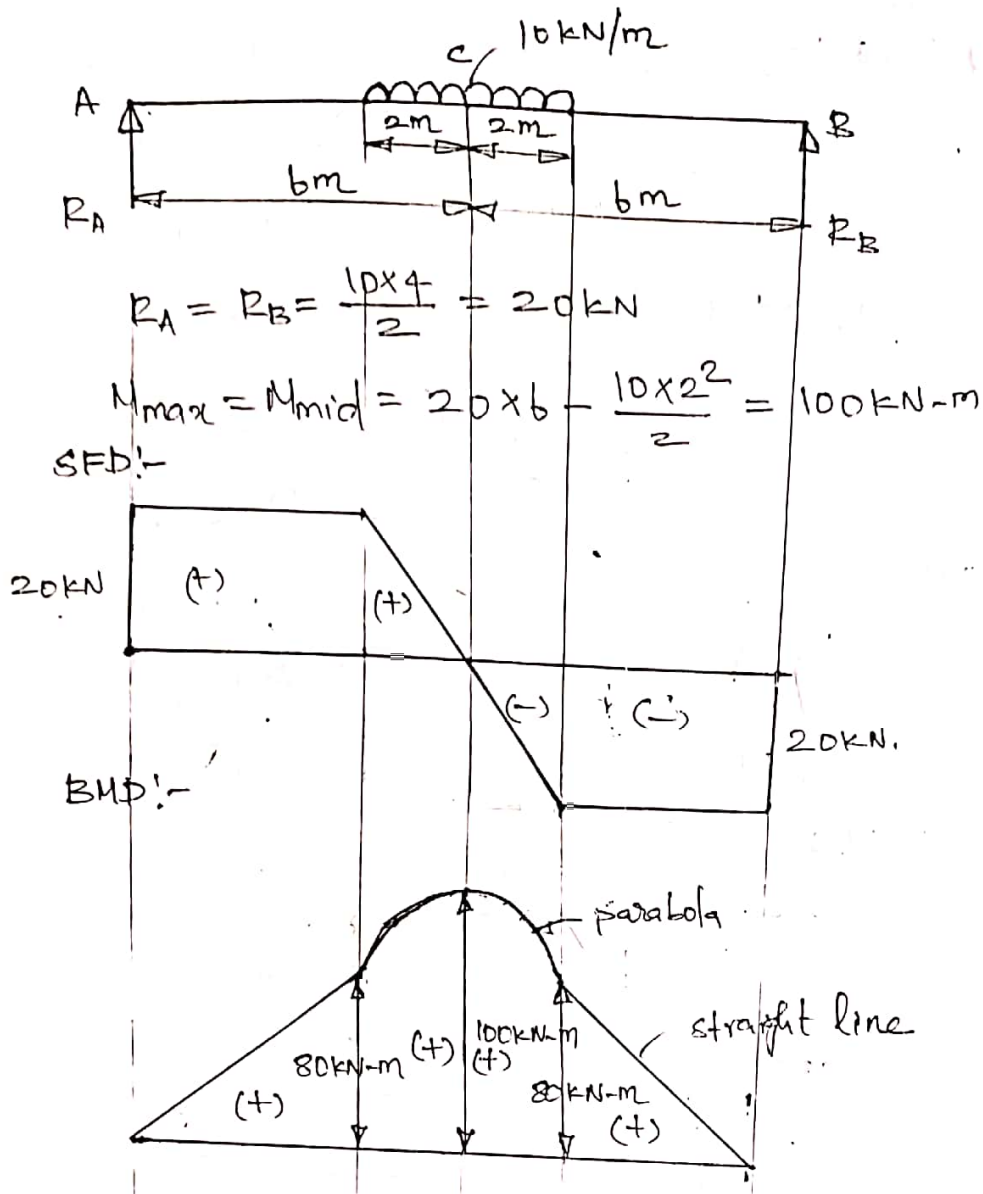 10 kN/m
C
A
2m 2m
B
6m 6m
RA
RB
RA = RB = 10×4/2 = 20 kN
Mmax = Mmid = 20×6 - 10×2²/2 = 100 kN-m
SFD:-
20 kN (+) (+)
(-) (-)
20 kN.
BMD:-
parabola
straight line
80 kN-m (+) 100 kN-m
(+)
80 kN-m
(+) (+)